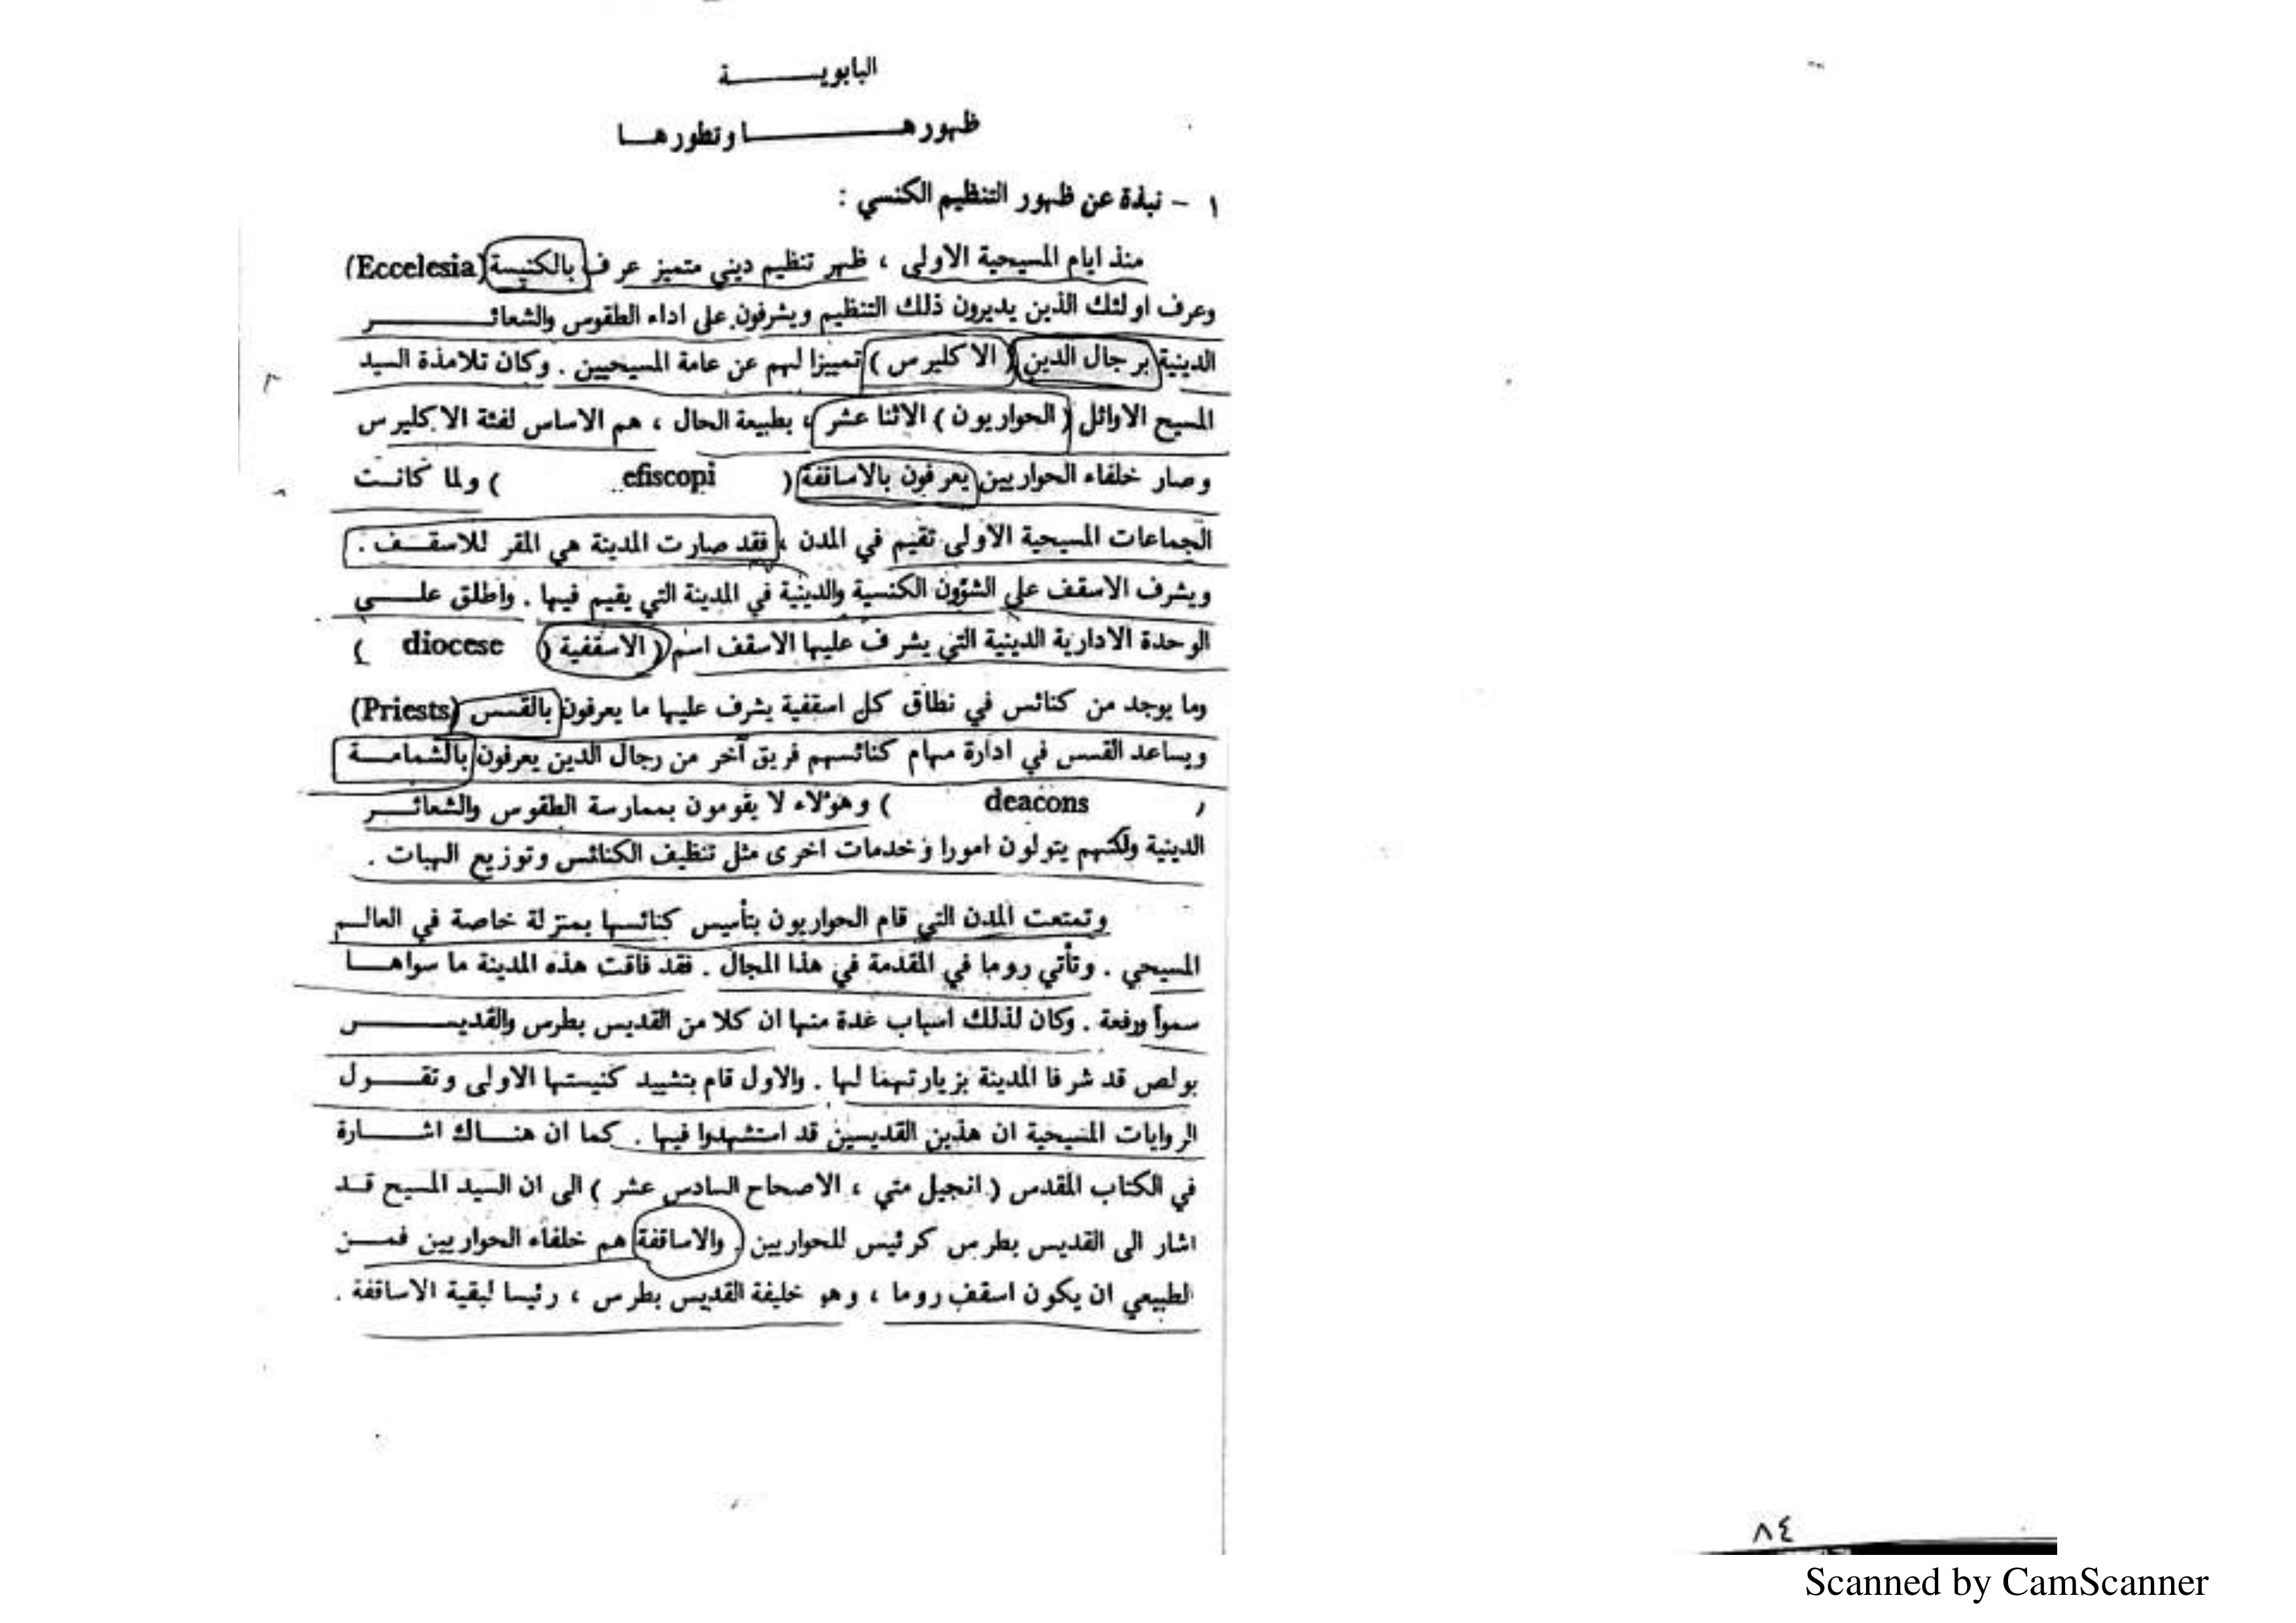 البابويــــــة
ظهورهــــــــــا وتطورهــا
١ - نبذة عن ظهور التنظيم الكنسي :
منذ ايام المسيحية الاولى ، ظهر تنظيم ديني متميز عرف بالكنيسة (Eccelesia)
وعرف اولئك الذين يديرون ذلك التنظيم ويشرفون على اداء الطقوس والشعائــــــــر
الدينية برجال الدين ( الاكليرس ) تمييزا لهم عن عامة المسيحيين . وكان تلامذة السيد
المسيح الاوائل ( الحواريون ) الاثنا عشر ، بطبيعة الحال ، هم الاساس لفئة الاكليرس
وصار خلفاء الحواريين يعرفون بالاساقفة ( efiscopi ) ولما كانــت
الجماعات المسيحية الاولى تقيم في المدن ، فقد صارت المدينة هي المقر للاسقــف .
ويشرف الاسقف على الشؤون الكنسية والدينية في المدينة التي يقيم فيها . واطلق علــــى
الوحدة الادارية الدينية التي يشرف عليها الاسقف اسم ( الاسقفية ) ( diocese )
وما يوجد من كنائس في نطاق كل اسقفية يشرف عليها ما يعرفون بالقسس (Priests)
ويساعد القسس في ادارة مهام كنائسهم فريق آخر من رجال الدين يعرفون بالشمامــة
( deacons ) وهؤلاء لا يقومون بممارسة الطقوس والشعائــــر
الدينية ولكنهم يتولون امورا وخدمات اخرى مثل تنظيف الكنائس وتوزيع الهبات .
وتمتعت المدن التي قام الحواريون بتأسيس كنائسها بمنزلة خاصة في العالــم
المسيحي . وتأتي روما في المقدمة في هذا المجال . فقد فاقت هذه المدينة ما سواهــا
سمواً ورفعة . وكان لذلك اسباب عدة منها ان كلا من القديس بطرس والقديــــــس
بولص قد شرفا المدينة بزيارتهما لها . والاول قام بتشييد كنيستها الاولى وتقــــول
الروايات المسيحية ان هذين القديسين قد استشهدوا فيها . كما ان هنــاك اشــــارة
في الكتاب المقدس ( انجيل متي ، الاصحاح السادس عشر ) الى ان السيد المسيح قــد
اشار الى القديس بطرس كرئيس للحواريين . والاساقفة هم خلفاء الحواريين فمــن
الطبيعي ان يكون اسقف روما ، وهو خليفة القديس بطرس ، رئيسا لبقية الاساقفة .
٨٤
Scanned by CamScanner